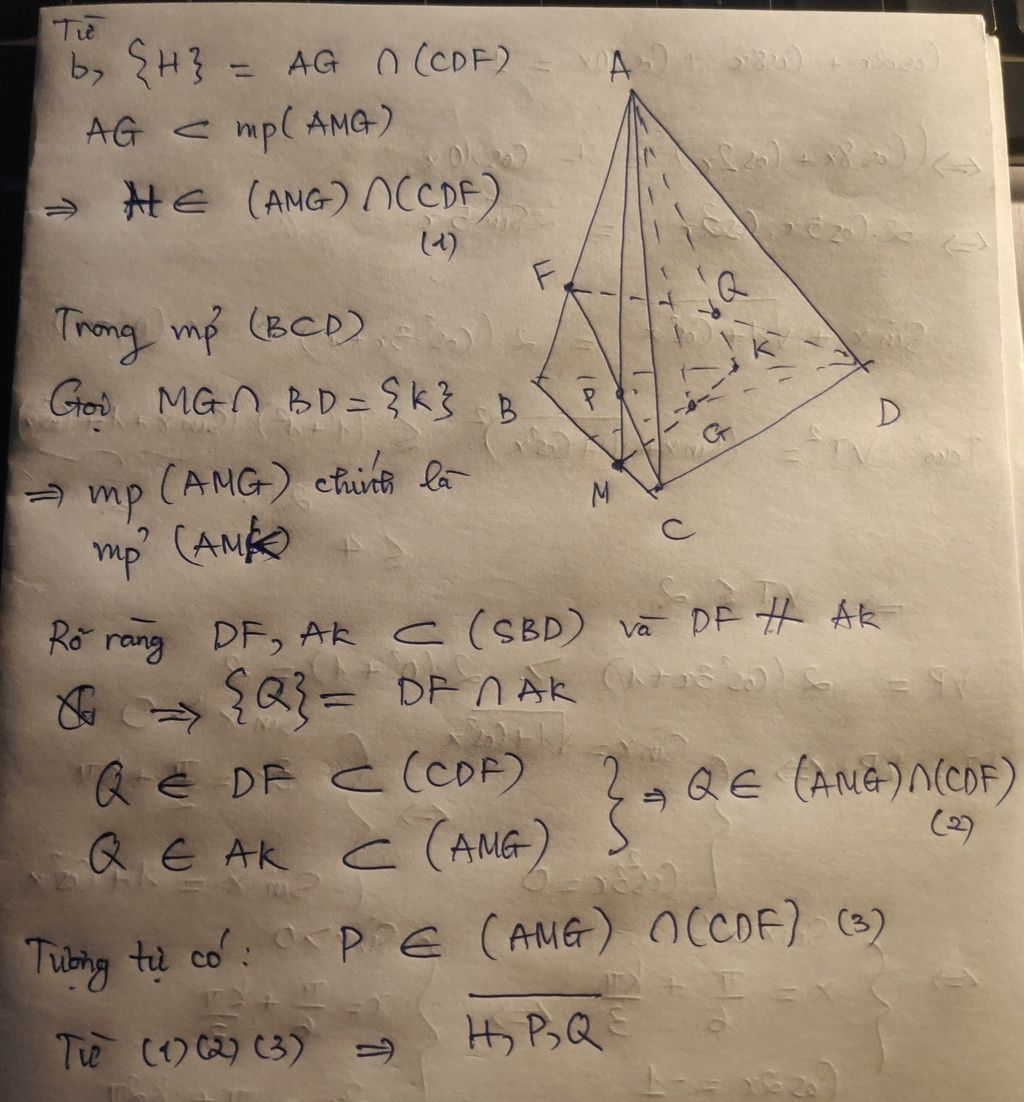 Từ
b, {H} = AG ∩ (CDF)
AG ⊂ mp(AMG)
⇒ H ∈ (AMG) ∩ (CDF)
(1)
Trong mp (BCD)
Gọi MG ∩ BD = {K}
⇒ mp (AMG) chính là
mp (AMK)
Rõ ràng DF, AK ⊂ (SBD) và DF ∦ AK
⇒ {Q} = DF ∩ AK
Q ∈ DF ⊂ (CDF)
Q ∈ AK ⊂ (AMG)
} ⇒ Q ∈ (AMG) ∩ (CDF)
(2)
Tương tự có: P ∈ (AMG) ∩ (CDF) (3)
Từ (1) (2) (3) ⇒ H, P, Q
A
F
Q
K
B
P
G
D
M
C